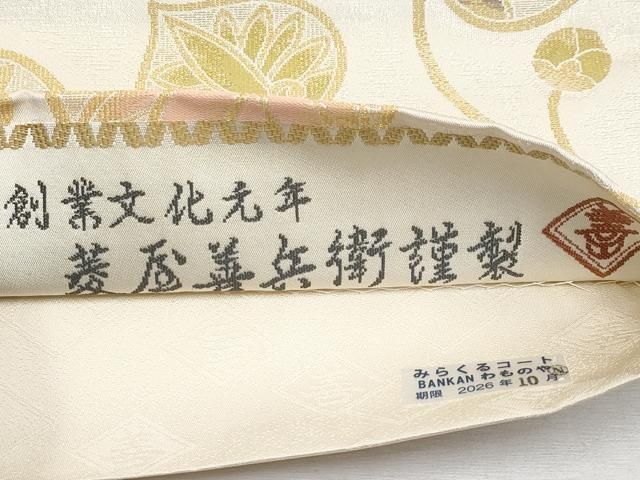 創業文化元年
菱屋善兵衛謹製
善
みらくるコート
BANKAN わものや
期限 2026年10月